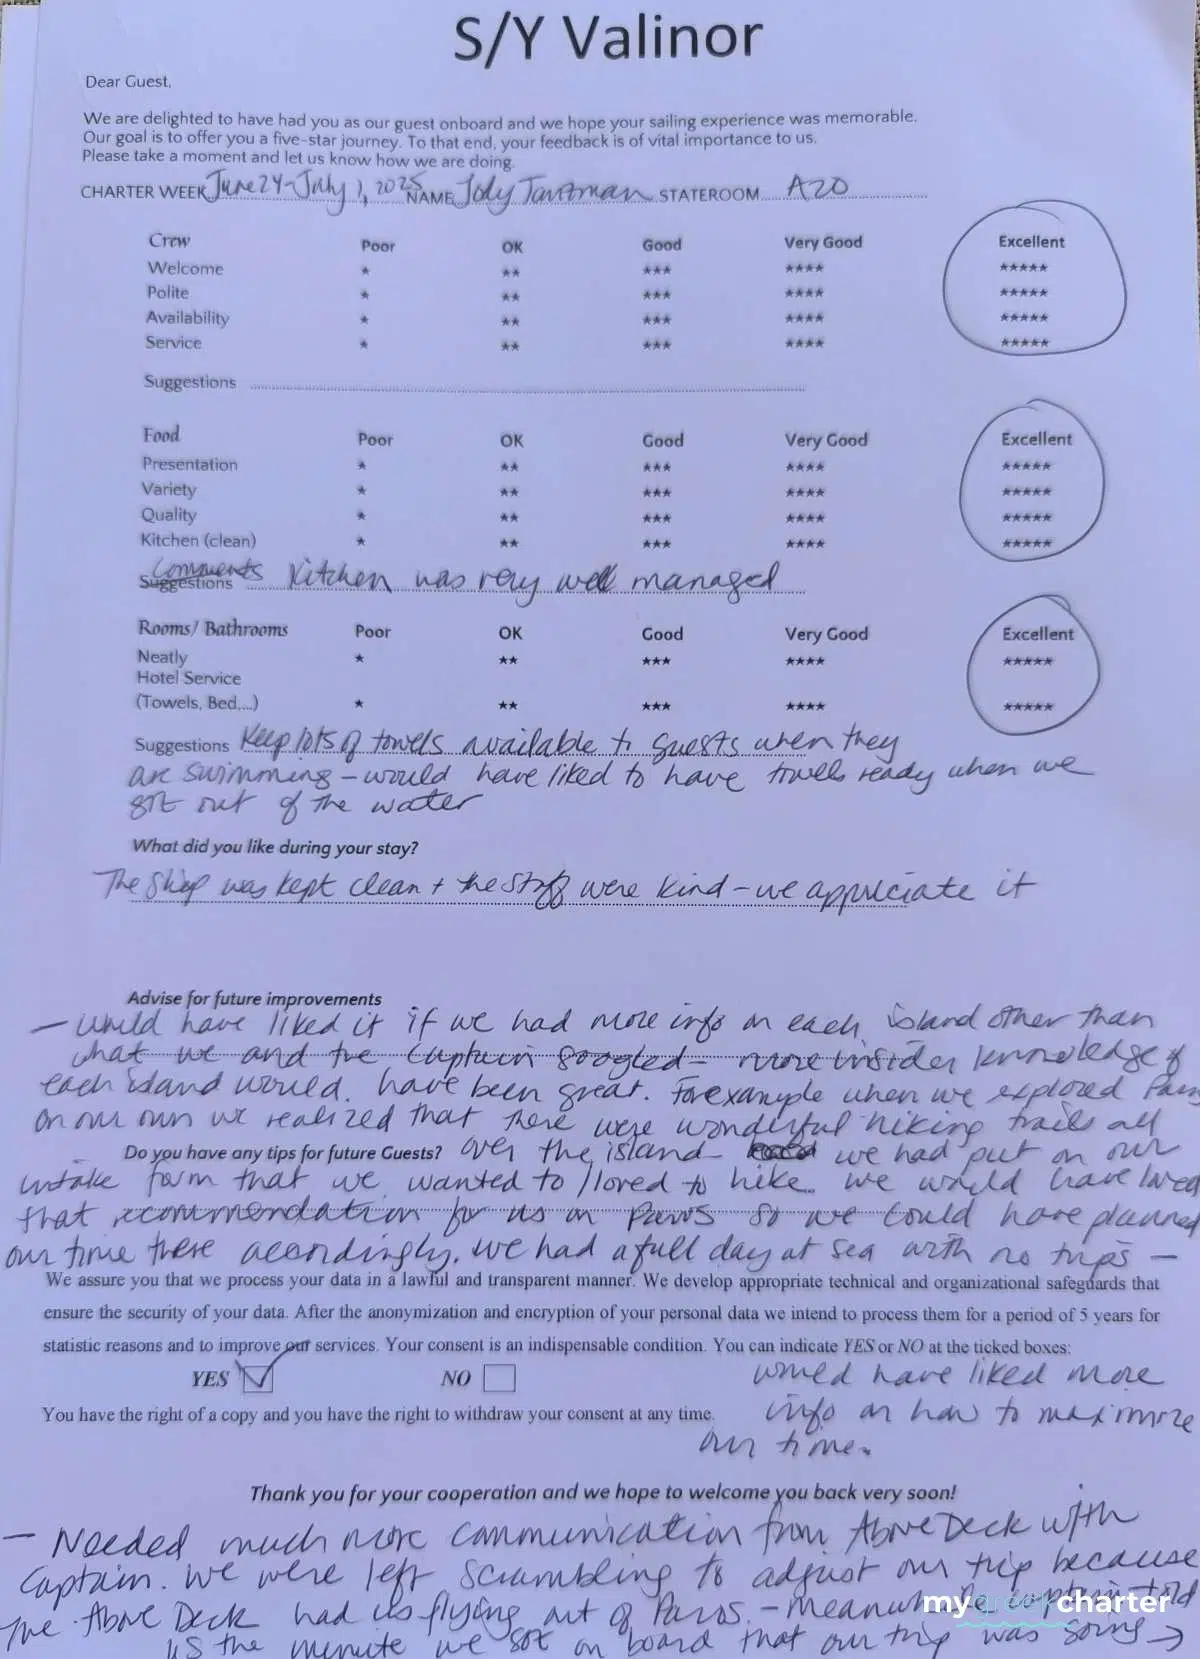 S/Y Valinor
Dear Guest,
We are delighted to have had you as our guest onboard and we hope your sailing experience was memorable.
Our goal is to offer you a five-star journey. To that end, your feedback is of vital importance to us.
Please take a moment and let us know how we are doing.
CHARTER WEEK June 24-July 1, 2025 NAME Jody STATEROOM A20
Crew Poor OK Good Very Good Excellent
Welcome ★ ★★ ★★★ ★★★★ ★★★★★
Polite ★ ★★ ★★★ ★★★★ ★★★★★
Availability ★ ★★ ★★★ ★★★★ ★★★★★
Service ★ ★★ ★★★ ★★★★ ★★★★★
Suggestions
Food Poor OK Good Very Good Excellent
Presentation ★ ★★ ★★★ ★★★★ ★★★★★
Variety ★ ★★ ★★★ ★★★★ ★★★★★
Quality ★ ★★ ★★★ ★★★★ ★★★★★
Kitchen (clean) ★ ★★ ★★★ ★★★★ ★★★★★
Comments
Suggestions Kitchen was very well managed
Rooms/ Bathrooms Poor OK Good Very Good Excellent
Neatly ★ ★★ ★★★ ★★★★ ★★★★★
Hotel Service
(Towels, Bed,...) ★ ★★ ★★★ ★★★★ ★★★★★
Suggestions Keep lots of towels available to guests when they
are swimming - would have liked to have towels ready when we
got out of the water
What did you like during your stay?
The ship was kept clean + the staff were kind - we appreciate it
Advise for future improvements
- would have liked it if we had more info on each island other than
what we and the captain googled - more insider knowledge of
each island would have been great. For example when we explored Paros
on our own we realized that there were wonderful hiking trails all
Do you have any tips for future Guests? over the island - we had put on our
intake form that we wanted to/loved to hike. we would have loved
that recommendation for us on Paros so we could have planned
our time there accordingly. We had a full day at sea with no trips -
We assure you that we process your data in a lawful and transparent manner. We develop appropriate technical and organizational safeguards that
ensure the security of your data. After the anonymization and encryption of your personal data we intend to process them for a period of 5 years for
statistic reasons and to improve our services. Your consent is an indispensable condition. You can indicate YES or NO at the ticked boxes:
YES NO would have liked more
You have the right of a copy and you have the right to withdraw your consent at any time. info on how to maximize
our time.
Thank you for your cooperation and we hope to welcome you back very soon!
- Needed much more communication from Above Deck with
Captain. We were left scrambling to adjust our trip because
The Above Deck had us flying out of Paros. - meanwhile captain told
us the minute we got on board that our trip was going →
mygreekcharter